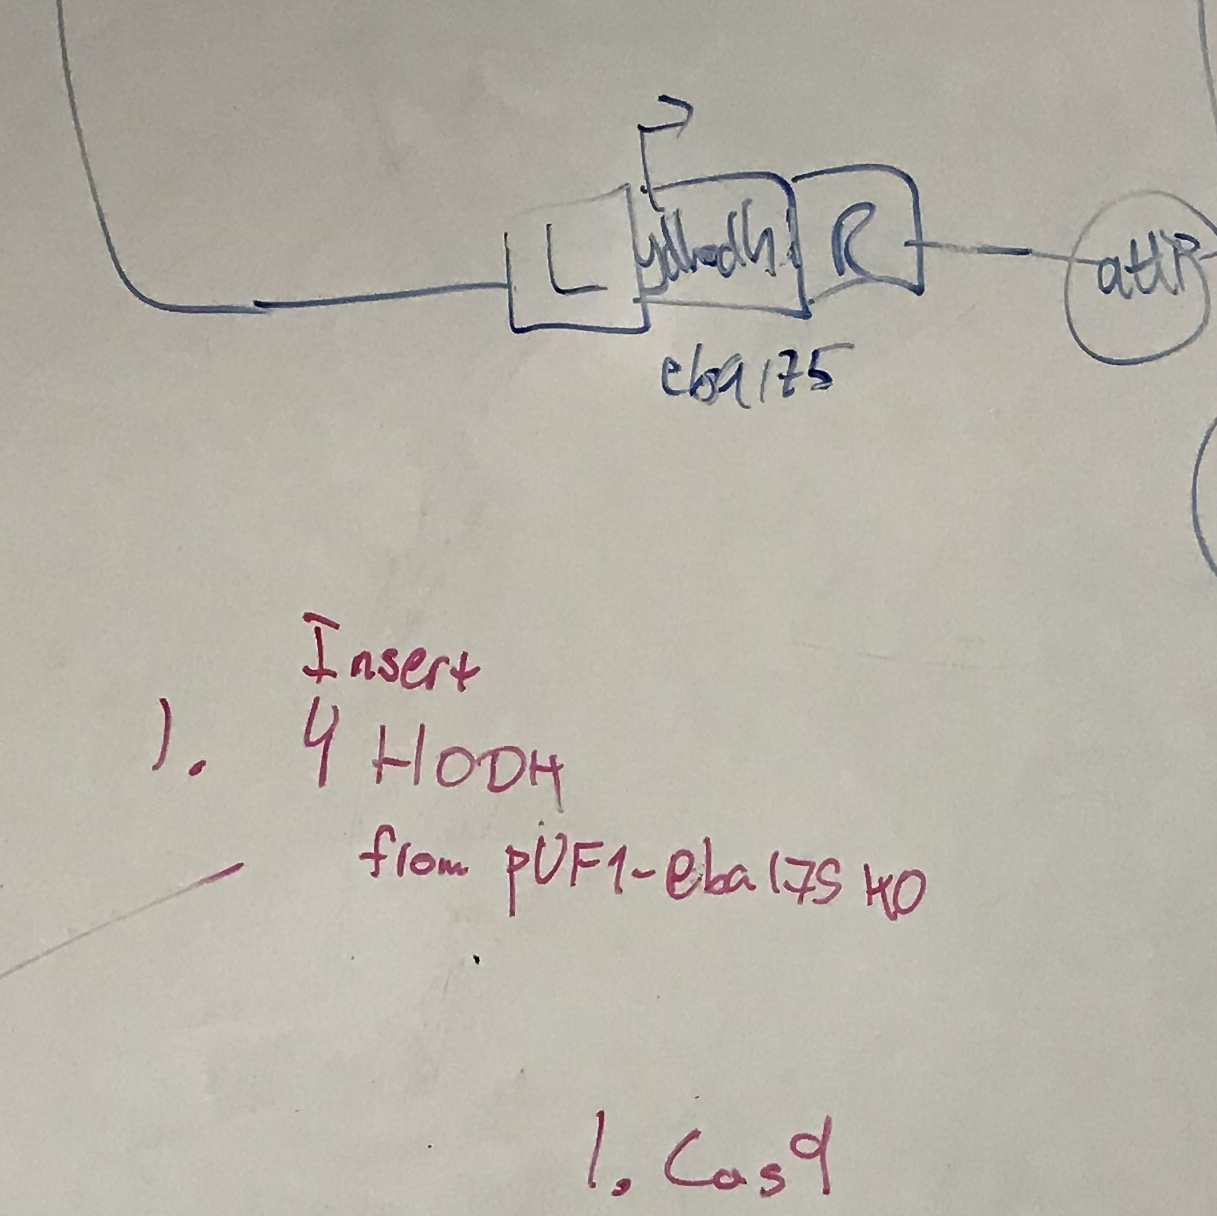 L ydhodh R attP
eba175
Insert
1. yHODH
from pUF1-eba175 KO
1. Cas9